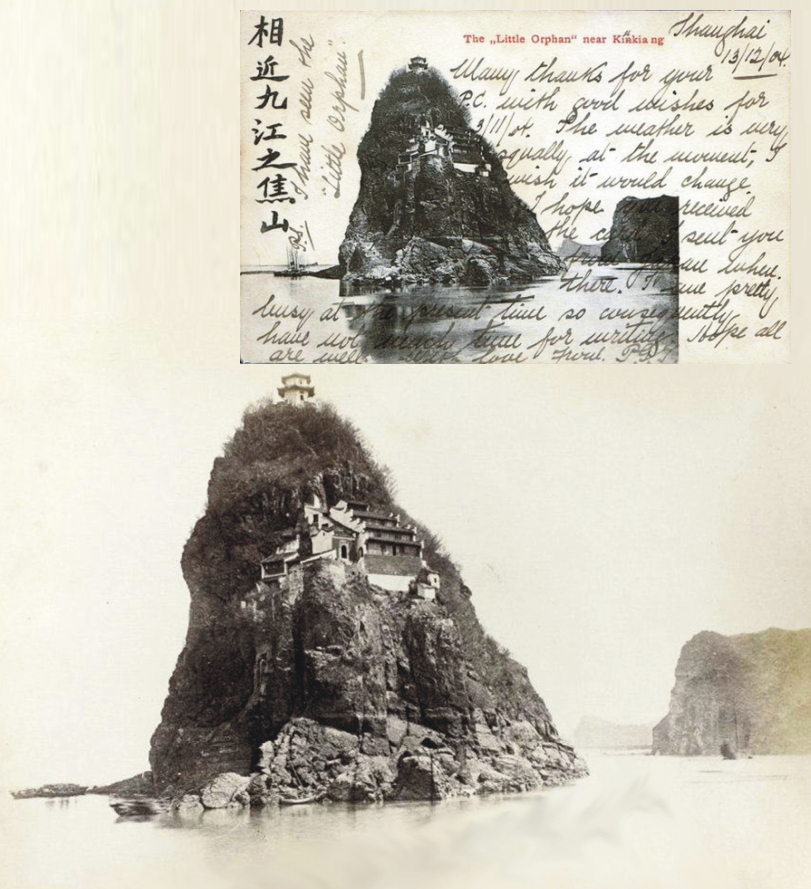 相近九江之焦山
P.S. I have seen the
"Little Orphan".
The „Little Orphan“ near Kiukiang
Shanghai
13/12/04.
Many thanks for your
P.C. with good wishes for
3/11/04. The weather is very
squally, at the moment, I
wish it would change.
I hope you received
the card I sent you
from Japan when
there. are pretty
busy at the present time so consequently,
have not much time for writing. Hope all
are well. with love from.